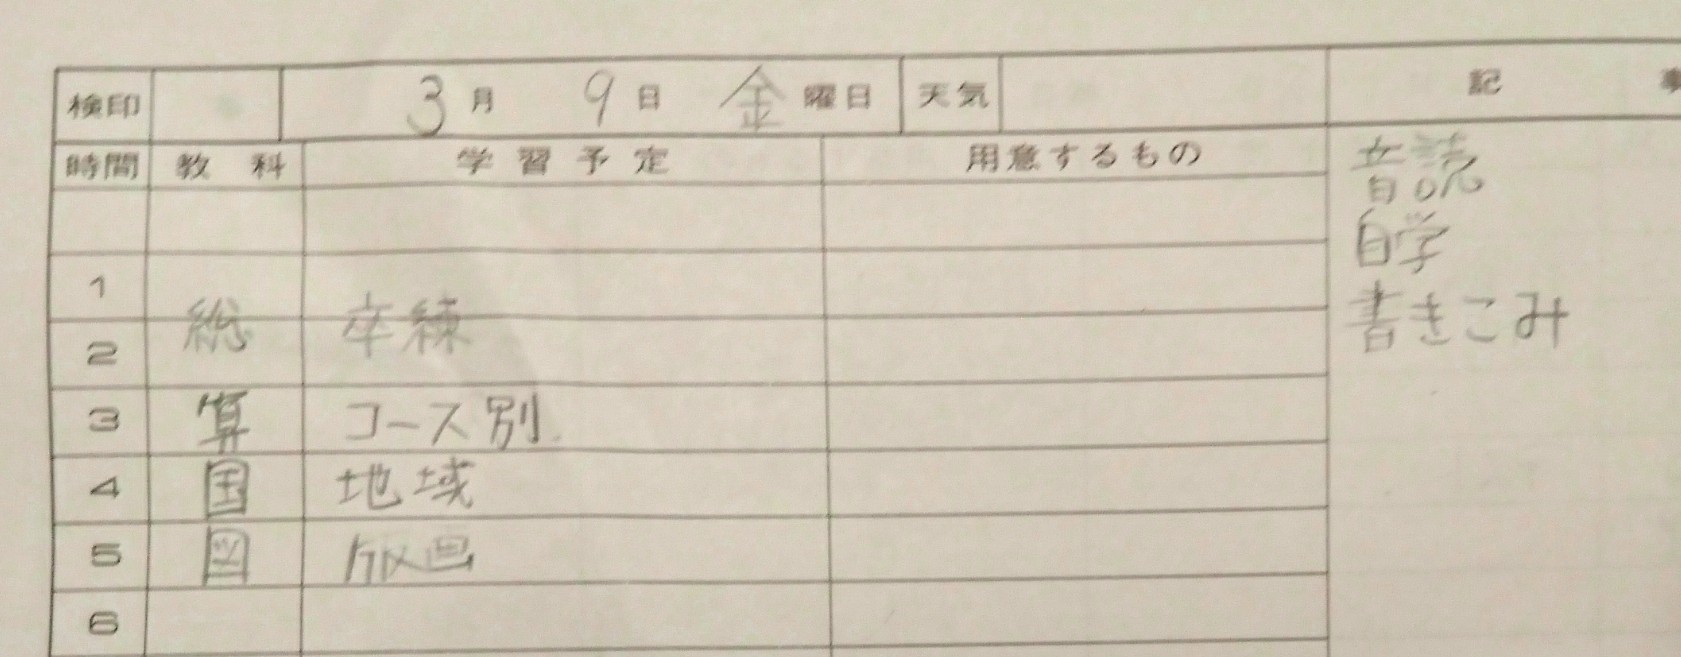 検印 3月 9日 金曜日 天気 記 事
時間 教科 学習予定 用意するもの
音読
自学
1
総 卒練
書きこみ
2
3 算 コース別
4 国 地域
5 図 版画
6